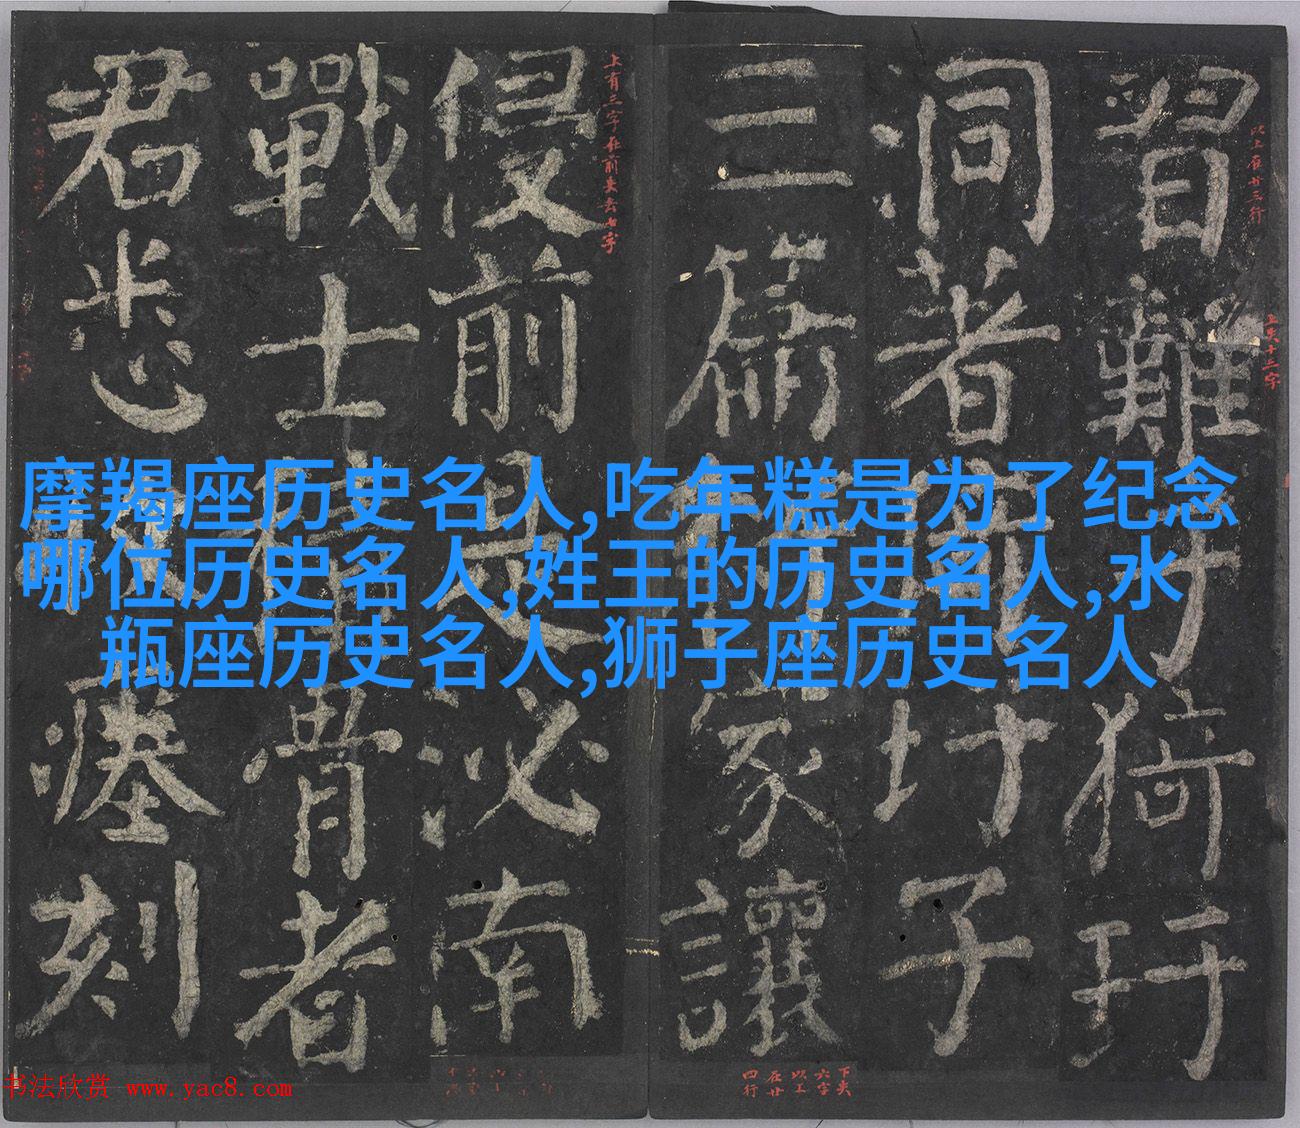 摩羯座历史名人,吃年糕是为了纪念
哪位历史名人,姓王的历史名人,水
瓶座历史名人,狮子座历史名人
習難
猗玗
洞著
玗子
三篇
家讓
侵前
必南
戰士
骨者
君悲
瘞刻
上有三字在前失去七字
以上在廿三行
上失十三字
下失
六字
以上
在廿
四行
书法欣赏 www.yac8.com